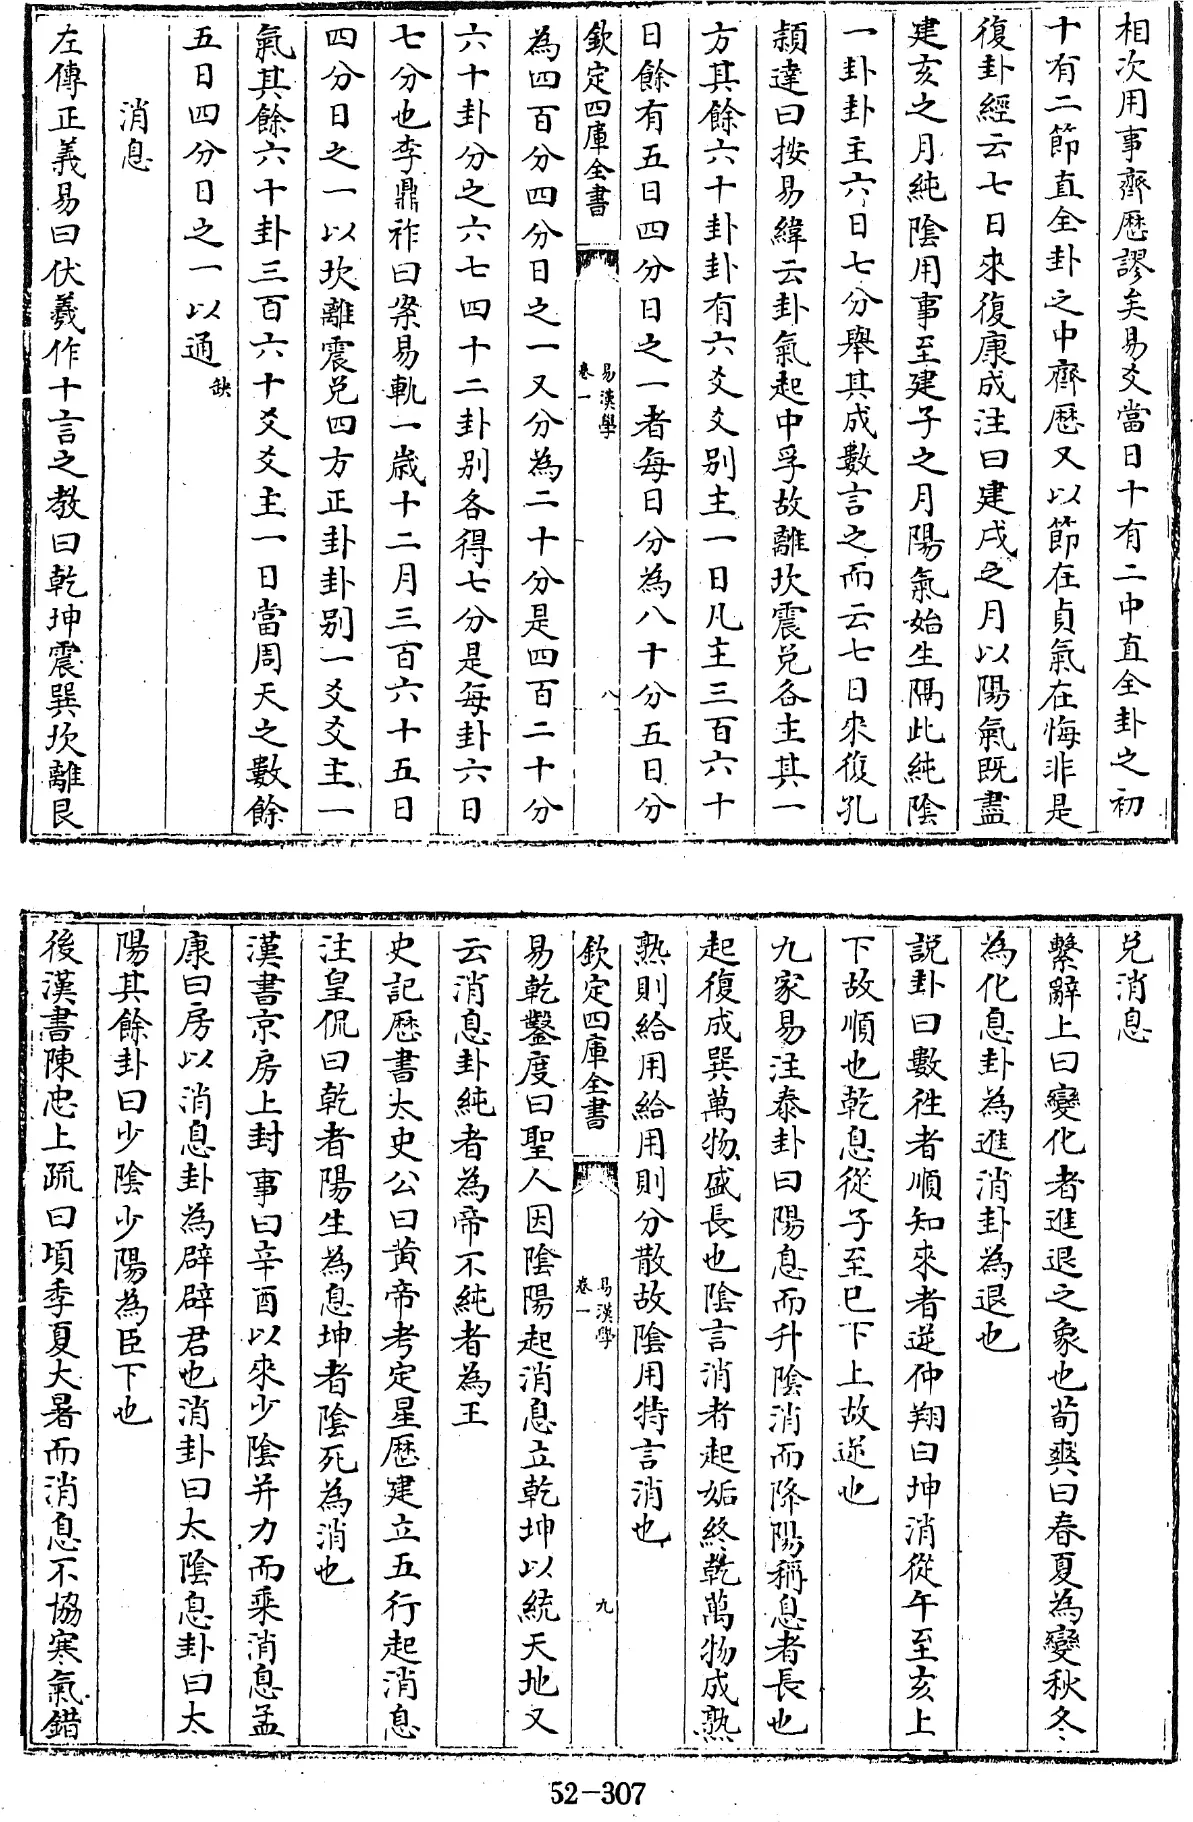 相次用事齊歷謬矣易爻當日十有二中直全卦之初
十有二節直全卦之中齊歷又以節在貞氣在悔非是
復卦經云七日來復康成注曰建戌之月以陽氣既盡
建亥之月純陰用事至建子之月陽氣始生隔此純陰
一卦卦主六日七分舉其成數言之而云七日來復孔
穎達曰按易緯云卦氣起中孚故離坎震兌各主其一
方其餘六十卦卦有六爻爻別主一日凡主三百六十
日餘有五日四分日之一者每日分為八十分五日分
欽定四庫全書
易漢學
卷一
八
為四百分四分日之一又分為二十分是四百二十分
六十卦分之六七四十二卦別各得七分是每卦六日
七分也李鼎祚曰案易軌一歲十二月三百六十五日
四分日之一以坎離震兌四方正卦卦別一爻爻主一
氣其餘六十卦三百六十爻爻主一日當周天之數餘
五日四分日之一以通缺
消息
左傳正義易曰伏羲作十言之教曰乾坤震巽坎離艮
兌消息
繫辭上曰變化者進退之象也荀爽曰春夏為變秋冬
為化息卦為進消卦為退也
說卦曰數往者順知來者逆仲翔曰坤消從午至亥上
下故順也乾息從子至巳下上故逆也
九家易注泰卦曰陽息而升陰消而降陽稱息者長也
起復成巽萬物盛長也陰言消者起姤終乾萬物成熟
熟則給用給用則分散故陰用特言消也
欽定四庫全書
易漢學
卷一
九
易乾鑿度曰聖人因陰陽起消息立乾坤以統天地又
云消息卦純者為帝不純者為王
史記歷書太史公曰黃帝考定星歷建立五行起消息
注皇侃曰乾者陽生為息坤者陰死為消也
漢書京房上封事曰辛酉以來少陰并力而乘消息孟
康曰房以消息卦為辟辟君也消卦曰太陰息卦曰太
陽其餘卦曰少陰少陽為臣下也
後漢書陳忠上疏曰頃季夏大暑而消息不協寒氣錯
52-307